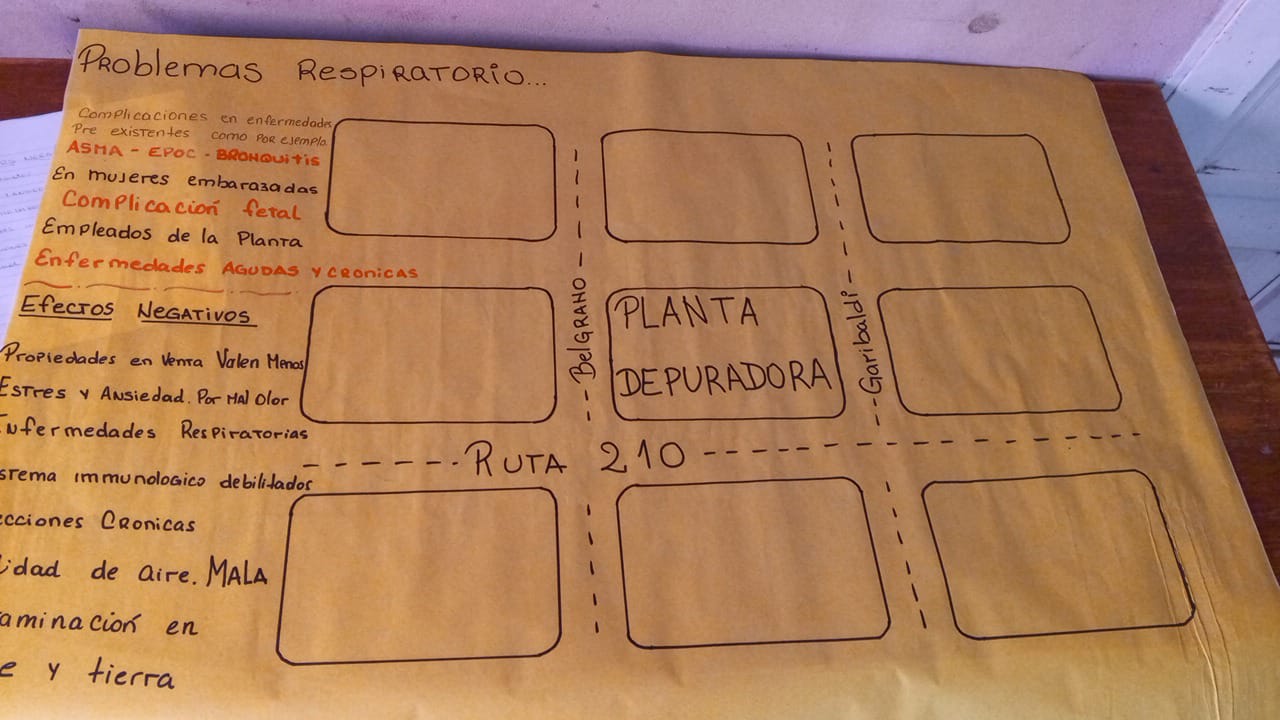 Problemas Respiratorio...
Complicaciones en enfermedades
Pre existentes como por ejemplo
ASMA - EPOC - BRONQUITIS
En mujeres embarazadas
Complicación fetal
Empleados de la Planta
Enfermedades AGUDAS Y CRONICAS
Efectos Negativos
Propiedades en Venta Valen Menos
Estres y Ansiedad. Por Mal Olor
Enfermedades Respiratorias
stema immunologico debilitados
ecciones Cronicas
idad de aire. MALA
aminación en
e y tierra
BelGRANO
PLANTA
DEPURADORA
Garibaldi
RUTA 210